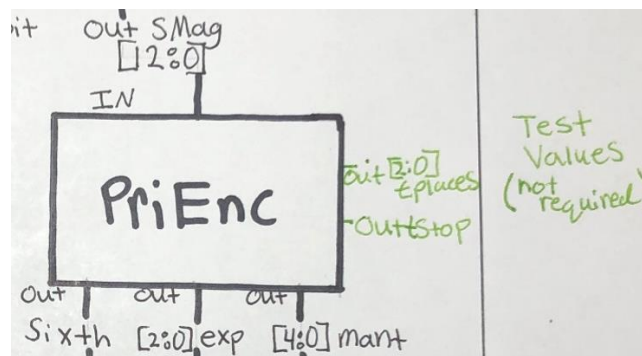 it
out SMag
[12:0]
IN
PriEnc
out [2:0]
tplaces
out tStop
Test
Values
(not
required)
out out out
Sixth [2:0] exp [4:0] mant